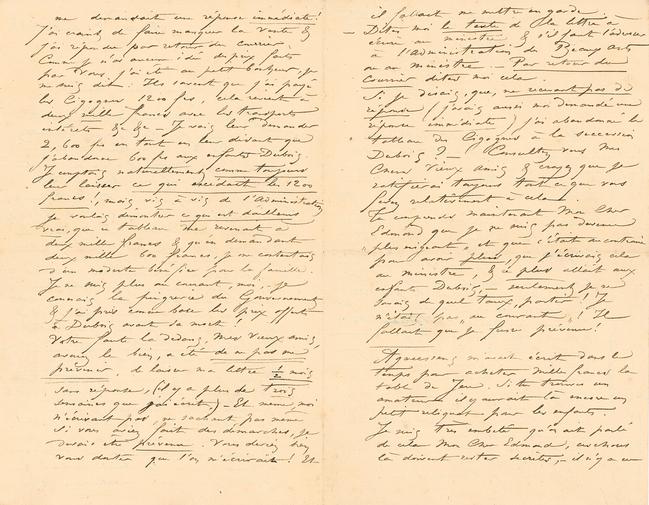 me demandant une réponse immédiate!
J'ai craint de faire manquer la vente &
j'ai répondu par retour du courrier.
Comme je n'ai aucune idée du prix faite
par Vous, j'ai été au petit bonheur, je
me suis dit: Ils savent que j'ai payé
les Cigognes 1200 frs, cela revient à
deux mille francs avec les transports
intérêts &c &c - Je vais leur demander
2,600 frs en tout en leur disant que
j'abandonne 600 frs aux enfants Dubois.
Je comptais naturellement comme toujours
leur laisser ce qui excédait les 1200
francs, mais vis à vis de l'Administration
je voulais démontrer ce qui est d'ailleurs
vrai, que ce tableau me revenait à
deux mille francs & qu'en demandant
deux mille 600 francs, je me contentais
d'un modeste bénéfice pour la famille.
Je ne suis plus au courant, moi, je
connais la pingrerie du Gouvernement
& j'ai pris comme base les prix offerts
à Dubois avant sa mort!
Votre faute là dedans, mes vieux amis,
a été de ne pas me
prévenir, de laisser ma lettre ½ mois
sans réponse, (il y a plus de trois
semaines que j'ai écrit) - Et même moi
n'écrivant pas, ne sachant pas même
si vous aviez fait des démarches, je
devais être prévenu. Vous deviez bien
vous douter que l'on m'écrirait! Et
il fallait me mettre en garde.
- Dites moi le texte de la lettre à
écrire au ministre & s'il faut l'adresser
à l'Administration des Beaux Arts
ou au ministre. - Par retour du
Courrier dites moi cela.
Si je disais, que, ne recevant pas de
réponse (j'avais aussi moi demandé une
réponse immédiate) j'ai abandonné le
tableau des Cigognes à la succession
Dubois? - Consultez vous mes
Chers Vieux amis & croyez que je
ratifierai toujours tout ce que vous
ferez relativement à cela.
Tu comprends maintenant Mon Cher
Edmond que je ne suis pas devenu
plus mignon, et que c'était au contraire
pour avoir plus, que j'écrivais cela
au ministre, & ce plus allait aux
enfants Dubois, - seulement je ne
savais de quel taux, partir! Je
n'étais pas au courant! Il
fallait que je fusse prévenu!
m'avait écrit dans le
temps pour acheter mille francs la
table de Jeu. Si tu trouves un
amateur il y aurait là encore un
petit reliquat pour les enfants.
Je suis très embêté qu'on ait parlé
de cela Mon Cher Edmond, ces choses
là doivent rester secrètes, - il n'y a eu